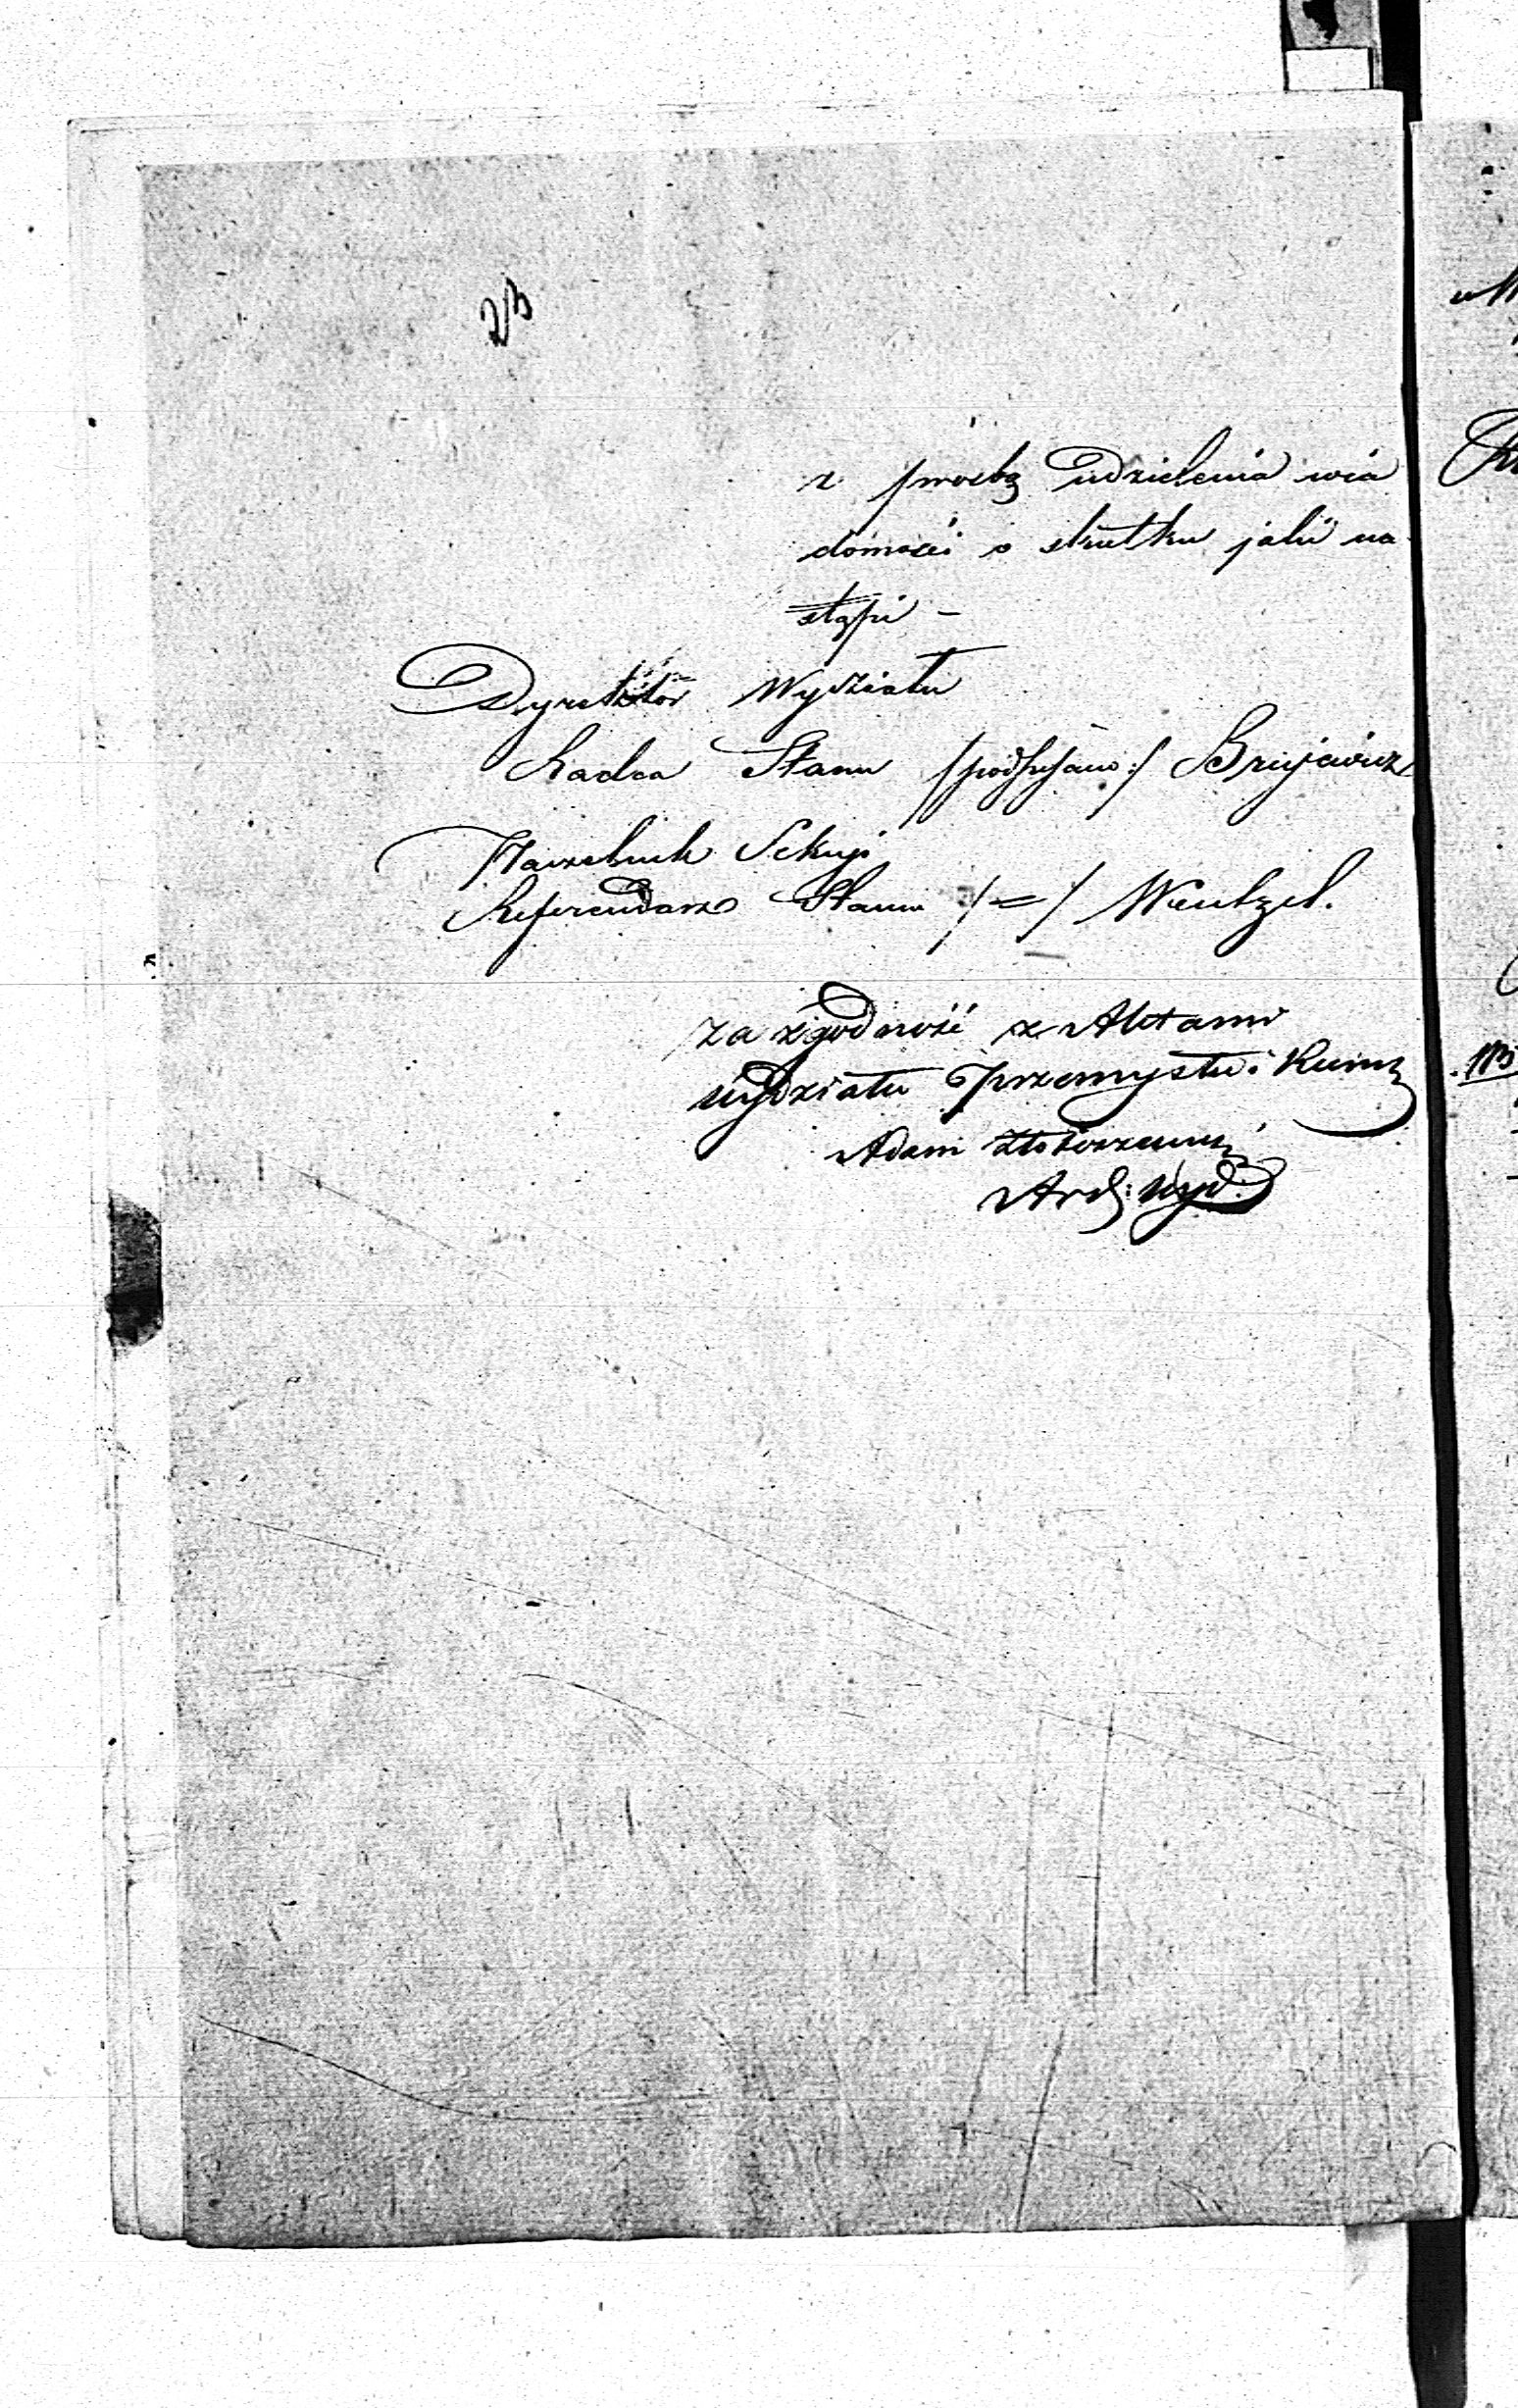 z prosbą udzielenia wia
domości o skutku jaki na
stąpi –
Dyrektor Wydziału
Radca Stanu /podpisano:/ Brujewicz
Naczelnik Sekcyi
Referendarz Stanu /=/ Wentzel.
za zgodność z Aktami
Wydziału Przemysłu i Kunsz
Adam
Arch: Wyd.